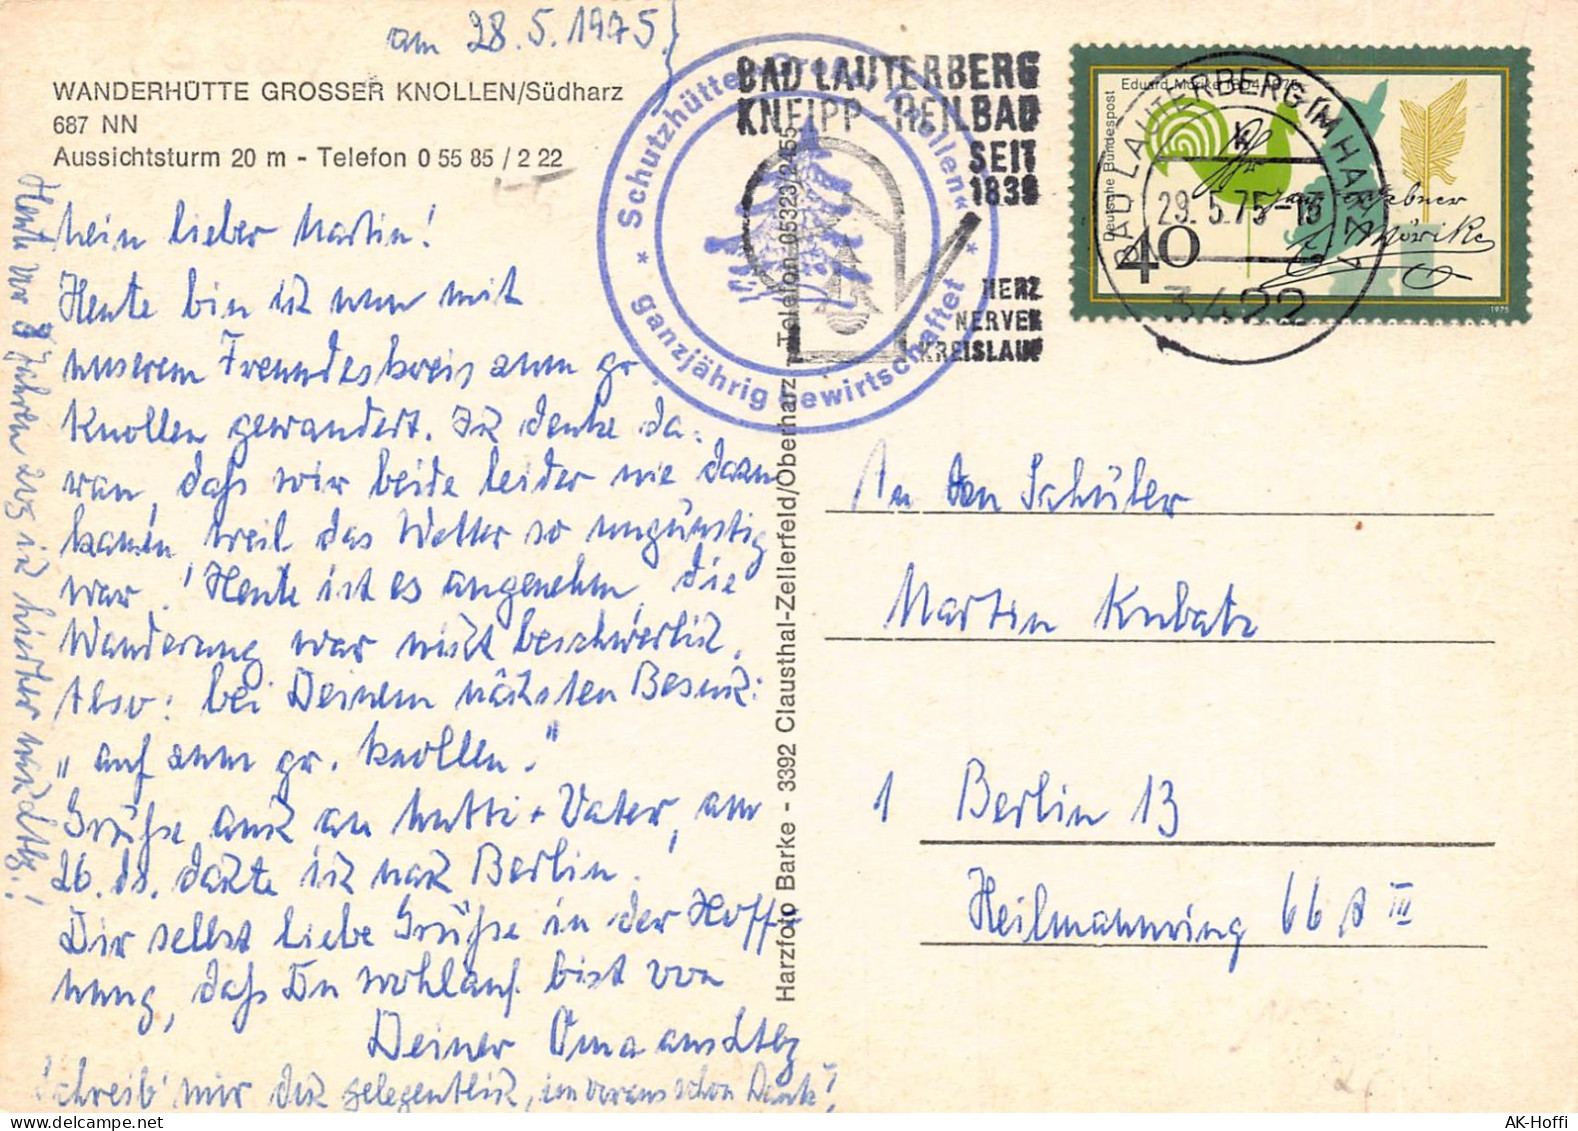 am 28.5.1975.
WANDERHÜTTE GROSSER KNOLLEN/Südharz
687 NN
Aussichtsturm 20 m - Telefon 0 55 85 / 2 22
Mein lieber Martin!
Heute bin ich nun mit
unserem Freundeskreis zum gr.
Knollen gewandert. Ich denke da-
ran, daß wir beide leider nie dazu
kamen, weil das Wetter so ungünstig
war. Heute ist es angenehm, die
Wanderung war nicht beschwerlich.
Also: bei Deinem nächsten Besuch:
"auf zum gr. Knollen."
Grüße auch an Mutti + Vater, am
26. ds. dachte ich nach Berlin.
Dir selbst liebe Grüße in der Hoff-
nung, daß Du wohlauf bist von
Deiner Oma aus Ltbg
Schreib' mir doch gelegentlich, im voraus schon Dank!
Heute vor 8 Jahren zog ich hierher nach Ltbg.!
Harzfoto Barke - 3392 Clausthal-Zellerfeld/Oberharz - Telefon 05323/2455
* Schutzhütte „Großer Knollen“ *
ganzjährig bewirtschaftet
BAD LAUTERBERG
KNEIPP-HEILBAD
SEIT
1839
HERZ
NERVEN
KREISLAUF
Eduard Mörike 1804-1875
Deutsche Bundespost
40
1975
Mörike
BAD LAUTERBERG IM HARZ 1
29.5.75-18
3422
An den Schüler
Martin Kubatz
1 Berlin 13
Heilmannring 66 A III
AK-Hoffi